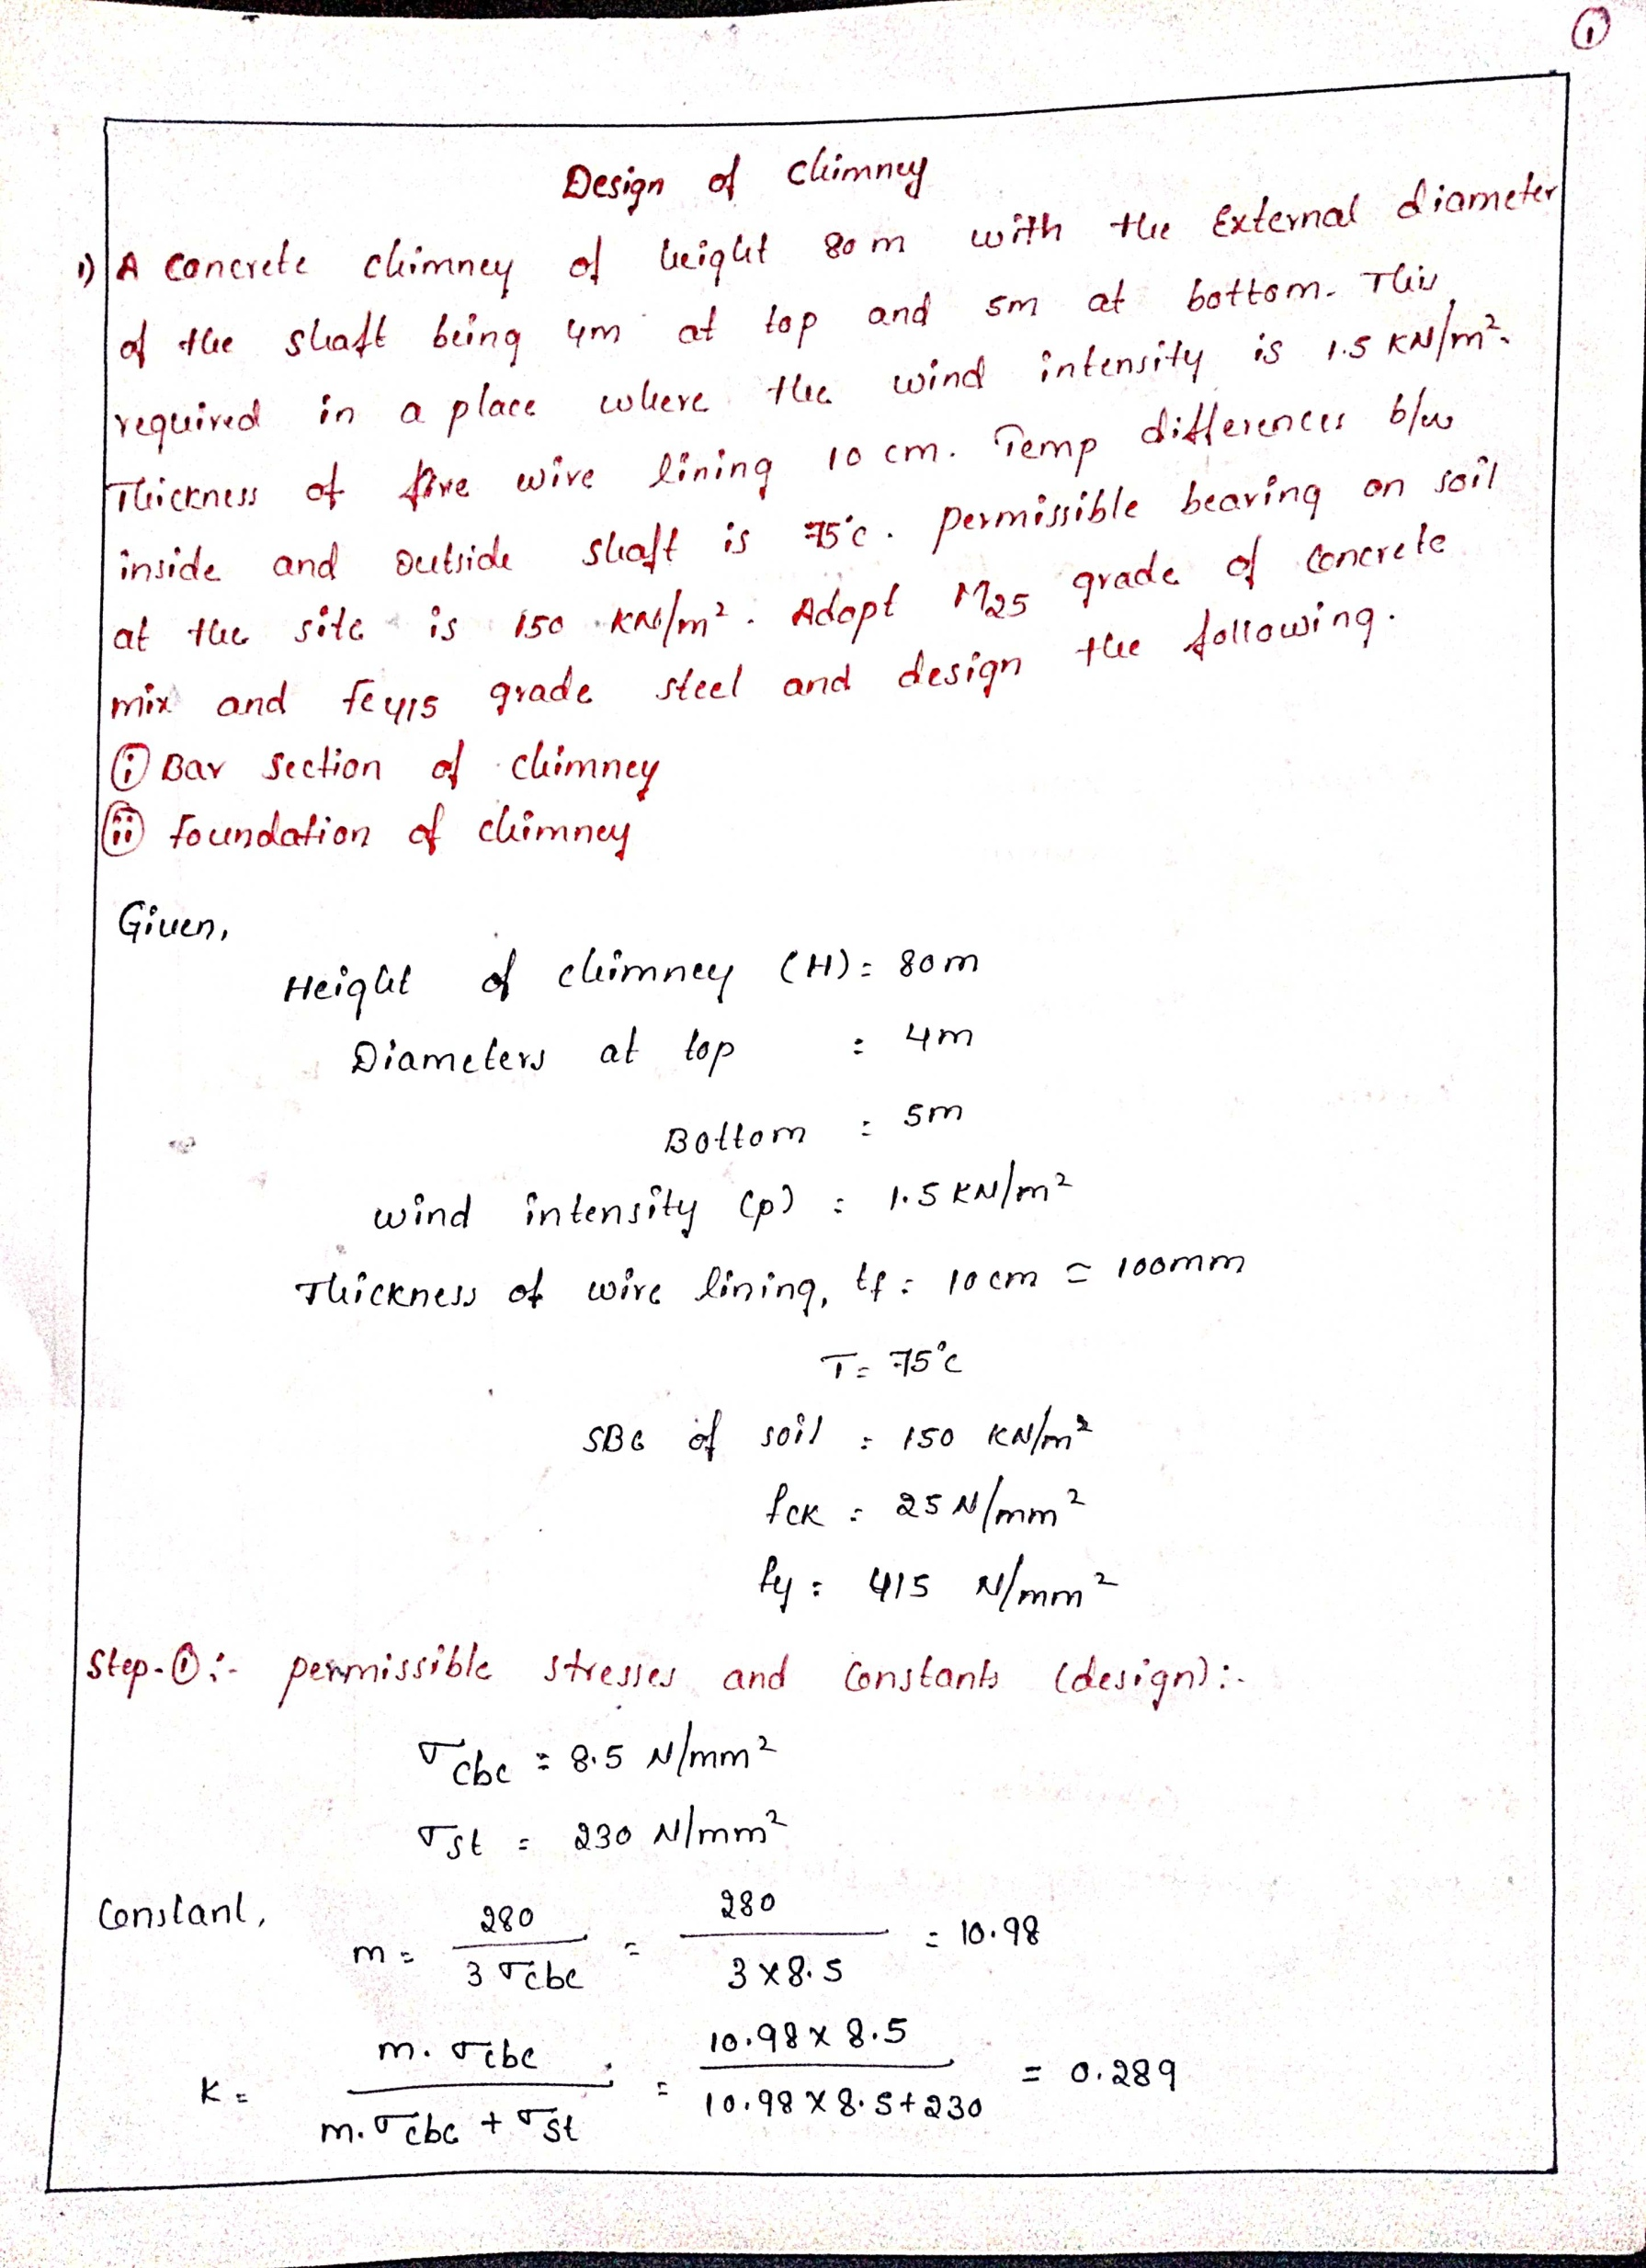 ①
Design of chimney
1) A concrete chimney of height 80m with the External diameter
of the shaft being 4m at top and 5m at bottom. This
required in a place where the wind intensity is 1.5 KN/m².
Thickness of fire wire lining 10 cm. Temp differences b/w
inside and outside shaft is 75°c. permissible bearing on soil
at the site is 150 KN/m². Adopt M25 grade of concrete
mix and fe415 grade steel and design the following.
ⓘ Bar section of chimney
ⓘⓘ foundation of chimney
Given,
Height of chimney (H) = 80m
Diameters at top = 4m
Bottom = 5m
wind intensity (p) = 1.5 KN/m²
Thickness of wire lining, tf = 10cm = 100mm
T = 75°c
SBC of soil = 150 KN/m²
fck = 25 N/mm²
fy = 415 N/mm²
Step-①:- permissible stresses and constants (design):-
σcbc = 8.5 N/mm²
σst = 230 N/mm²
Constant,
m = 280 / 3σcbc = 280 / 3×8.5 = 10.98
K = m.σcbc / m.σcbc + σst = 10.98×8.5 / 10.98×8.5+230 = 0.289